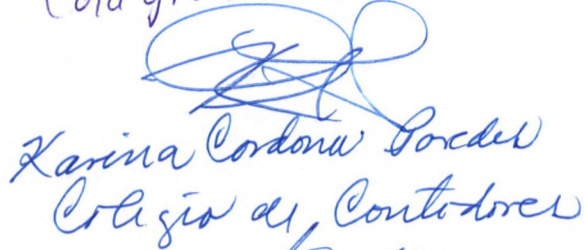 Karina Cordona Paredes
Colegio de Contadores